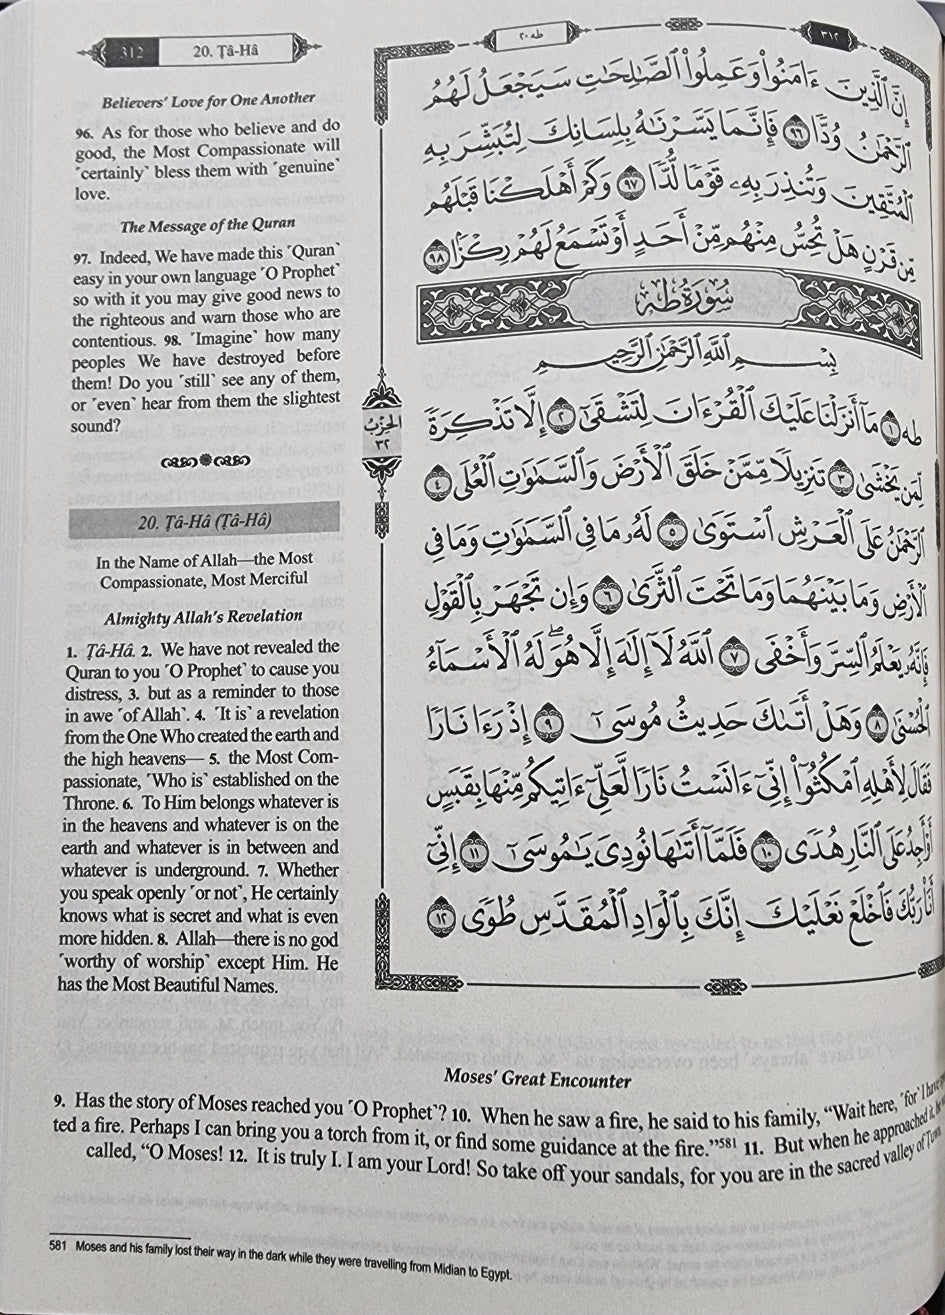 312
20. Ṭâ-Hâ
Believers’ Love for One Another
96. As for those who believe and do
good, the Most Compassionate will
˹certainly˺ bless them with ˹genuine˺
love.
The Message of the Quran
97. Indeed, We have made this ˹Quran˺
easy in your own language ˹O Prophet˺
so with it you may give good news to
the righteous and warn those who are
contentious. 98. ˹Imagine˺ how many
peoples We have destroyed before
them! Do you ˹still˺ see any of them,
or ˹even˺ hear from them the slightest
sound?
20. Ṭâ-Hâ (Ṭâ-Hâ)
In the Name of Allah—the Most
Compassionate, Most Merciful
Almighty Allah’s Revelation
1. Ṭâ-Hâ. 2. We have not revealed the
Quran to you ˹O Prophet˺ to cause you
distress, 3. but as a reminder to those
in awe ˹of Allah˺. 4. ˹It is˺ a revelation
from the One Who created the earth and
the high heavens— 5. the Most Com-
passionate, ˹Who is˺ established on the
Throne. 6. To Him belongs whatever is
in the heavens and whatever is on the
earth and whatever is in between and
whatever is underground. 7. Whether
you speak openly ˹or not˺, He certainly
knows what is secret and what is even
more hidden. 8. Allah—there is no god
˹worthy of worship˺ except Him. He
has the Most Beautiful Names.
طه ٢٠
٣١٢
إِنَّ ٱلَّذِينَ ءَامَنُواْ وَعَمِلُواْ ٱلصَّٰلِحَٰتِ سَيَجْعَلُ لَهُمُ
ٱلرَّحْمَٰنُ وُدًّا ٩٦ فَإِنَّمَا يَسَّرْنَٰهُ بِلِسَانِكَ لِتُبَشِّرَ بِهِ
ٱلْمُتَّقِينَ وَتُنذِرَ بِهِۦ قَوْمًا لُّدًّا ٩٧ وَكَمْ أَهْلَكْنَا قَبْلَهُم
مِّن قَرْنٍ هَلْ تُحِسُّ مِنْهُم مِّنْ أَحَدٍ أَوْ تَسْمَعُ لَهُمْ رِكْزًۢا ٩٨
سُورَةُ طه
بِسْمِ ٱللَّهِ ٱلرَّحْمَٰنِ ٱلرَّحِيمِ
طه ١ مَآ أَنزَلْنَا عَلَيْكَ ٱلْقُرْءَانَ لِتَشْقَىٰٓ ٢ إِلَّا تَذْكِرَةً
لِّمَن يَخْشَىٰ ٣ تَنزِيلًا مِّمَّنْ خَلَقَ ٱلْأَرْضَ وَٱلسَّمَٰوَٰتِ ٱلْعُلَى ٤
ٱلرَّحْمَٰنُ عَلَى ٱلْعَرْشِ ٱسْتَوَىٰ ٥ لَهُۥ مَا فِي ٱلسَّمَٰوَٰتِ وَمَا فِي
ٱلْأَرْضِ وَمَا بَيْنَهُمَا وَمَا تَحْتَ ٱلثَّرَىٰ ٦ وَإِن تَجْهَرْ بِٱلْقَوْلِ
فَإِنَّهُۥ يَعْلَمُ ٱلسِّرَّ وَأَخْفَى ٧ ٱللَّهُ لَآ إِلَٰهَ إِلَّا هُوَۖ لَهُ ٱلْأَسْمَآءُ
ٱلْحُسْنَىٰ ٨ وَهَلْ أَتَىٰكَ حَدِيثُ مُوسَىٰٓ ٩ إِذْ رَءَا نَارًا
فَقَالَ لِأَهْلِهِ ٱمْكُثُوٓاْ إِنِّيٓ ءَانَسْتُ نَارًا لَّعَلِّيٓ ءَاتِيكُم مِّنْهَا بِقَبَسٍ
أَوْ أَجِدُ عَلَى ٱلنَّارِ هُدًى ١٠ فَلَمَّآ أَتَىٰهَا نُودِيَ يَٰمُوسَىٰٓ ١١ إِنِّيٓ
أَنَا۠ رَبُّكَ فَٱخْلَعْ نَعْلَيْكَ إِنَّكَ بِٱلْوَادِ ٱلْمُقَدَّسِ طُوًى ١٢
الحِزْب
٣٢
Moses’ Great Encounter
9. Has the story of Moses reached you ˹O Prophet˺? 10. When he saw a fire, he said to his family, “Wait here, ˹for˺ I have
ted a fire. Perhaps I can bring you a torch from it, or find some guidance at the fire.”581 11. But when he approached it,
called, “O Moses! 12. It is truly I. I am your Lord! So take off your sandals, for you are in the sacred valley of
581 Moses and his family lost their way in the dark while they were travelling from Midian to Egypt.